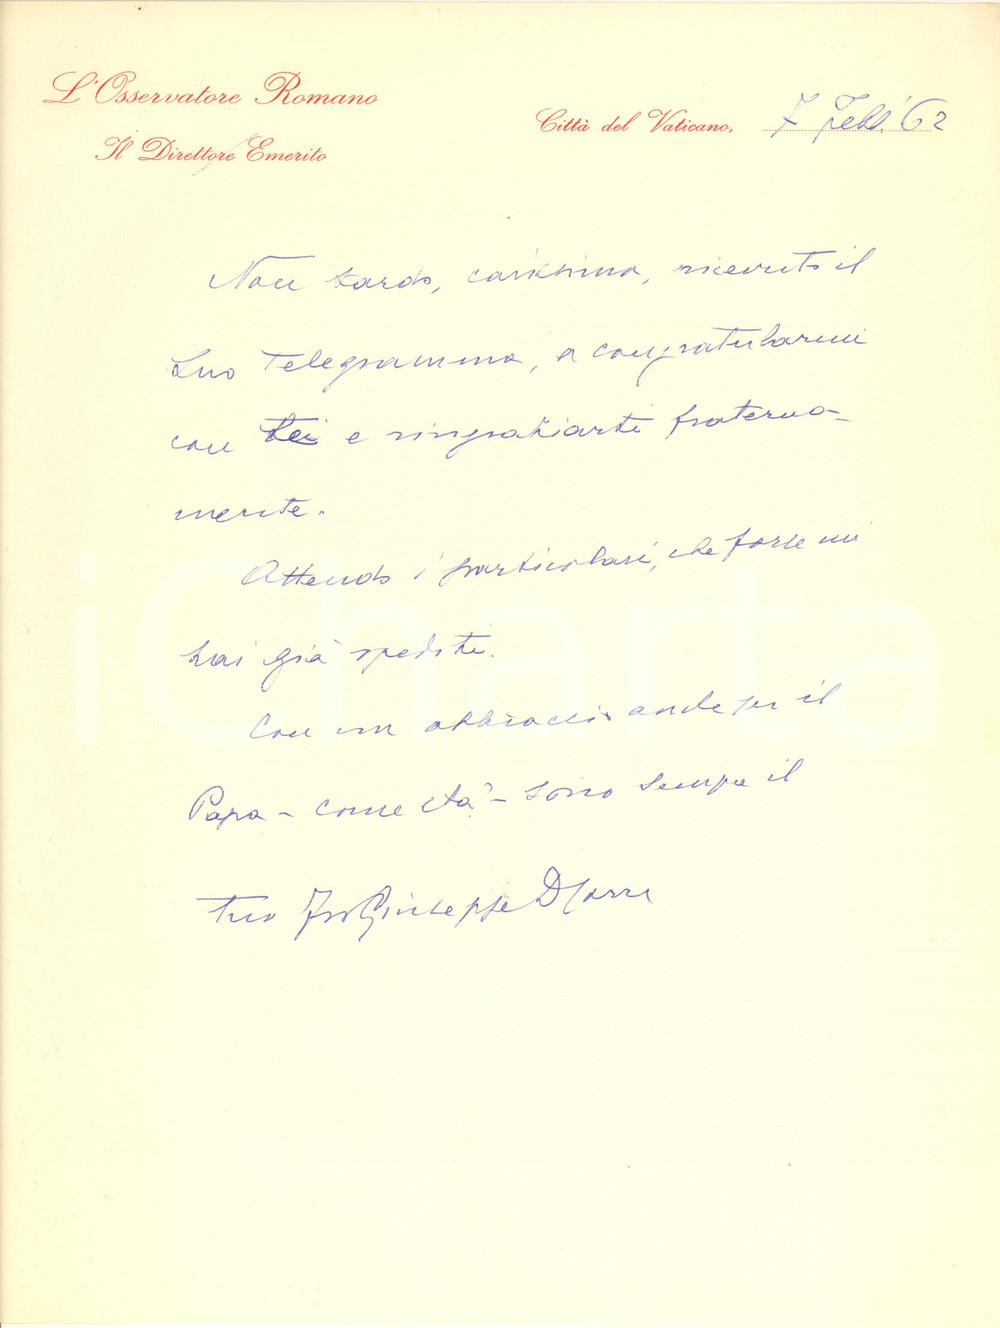 L'Osservatore Romano
Il Direttore Emerito
Città del Vaticano, 7 Febb. '62
Non tardo, carissimo, ricevuto il
tuo Telegramma, a congratularmi
con te e ringraziarti fraterna-
mente.
Attendo i particolari, che forse mi
hai già spediti.
Con un abbraccio anche per il
Papa - come sta? - sono sempre il
tuo Giuseppe D Torre
iCharta